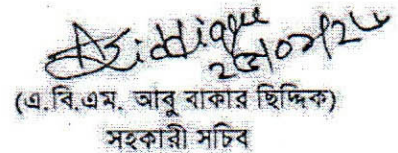 Siddique
(এ.বি.এম. আবু বাকার ছিদ্দিক)
সহকারী সচিব